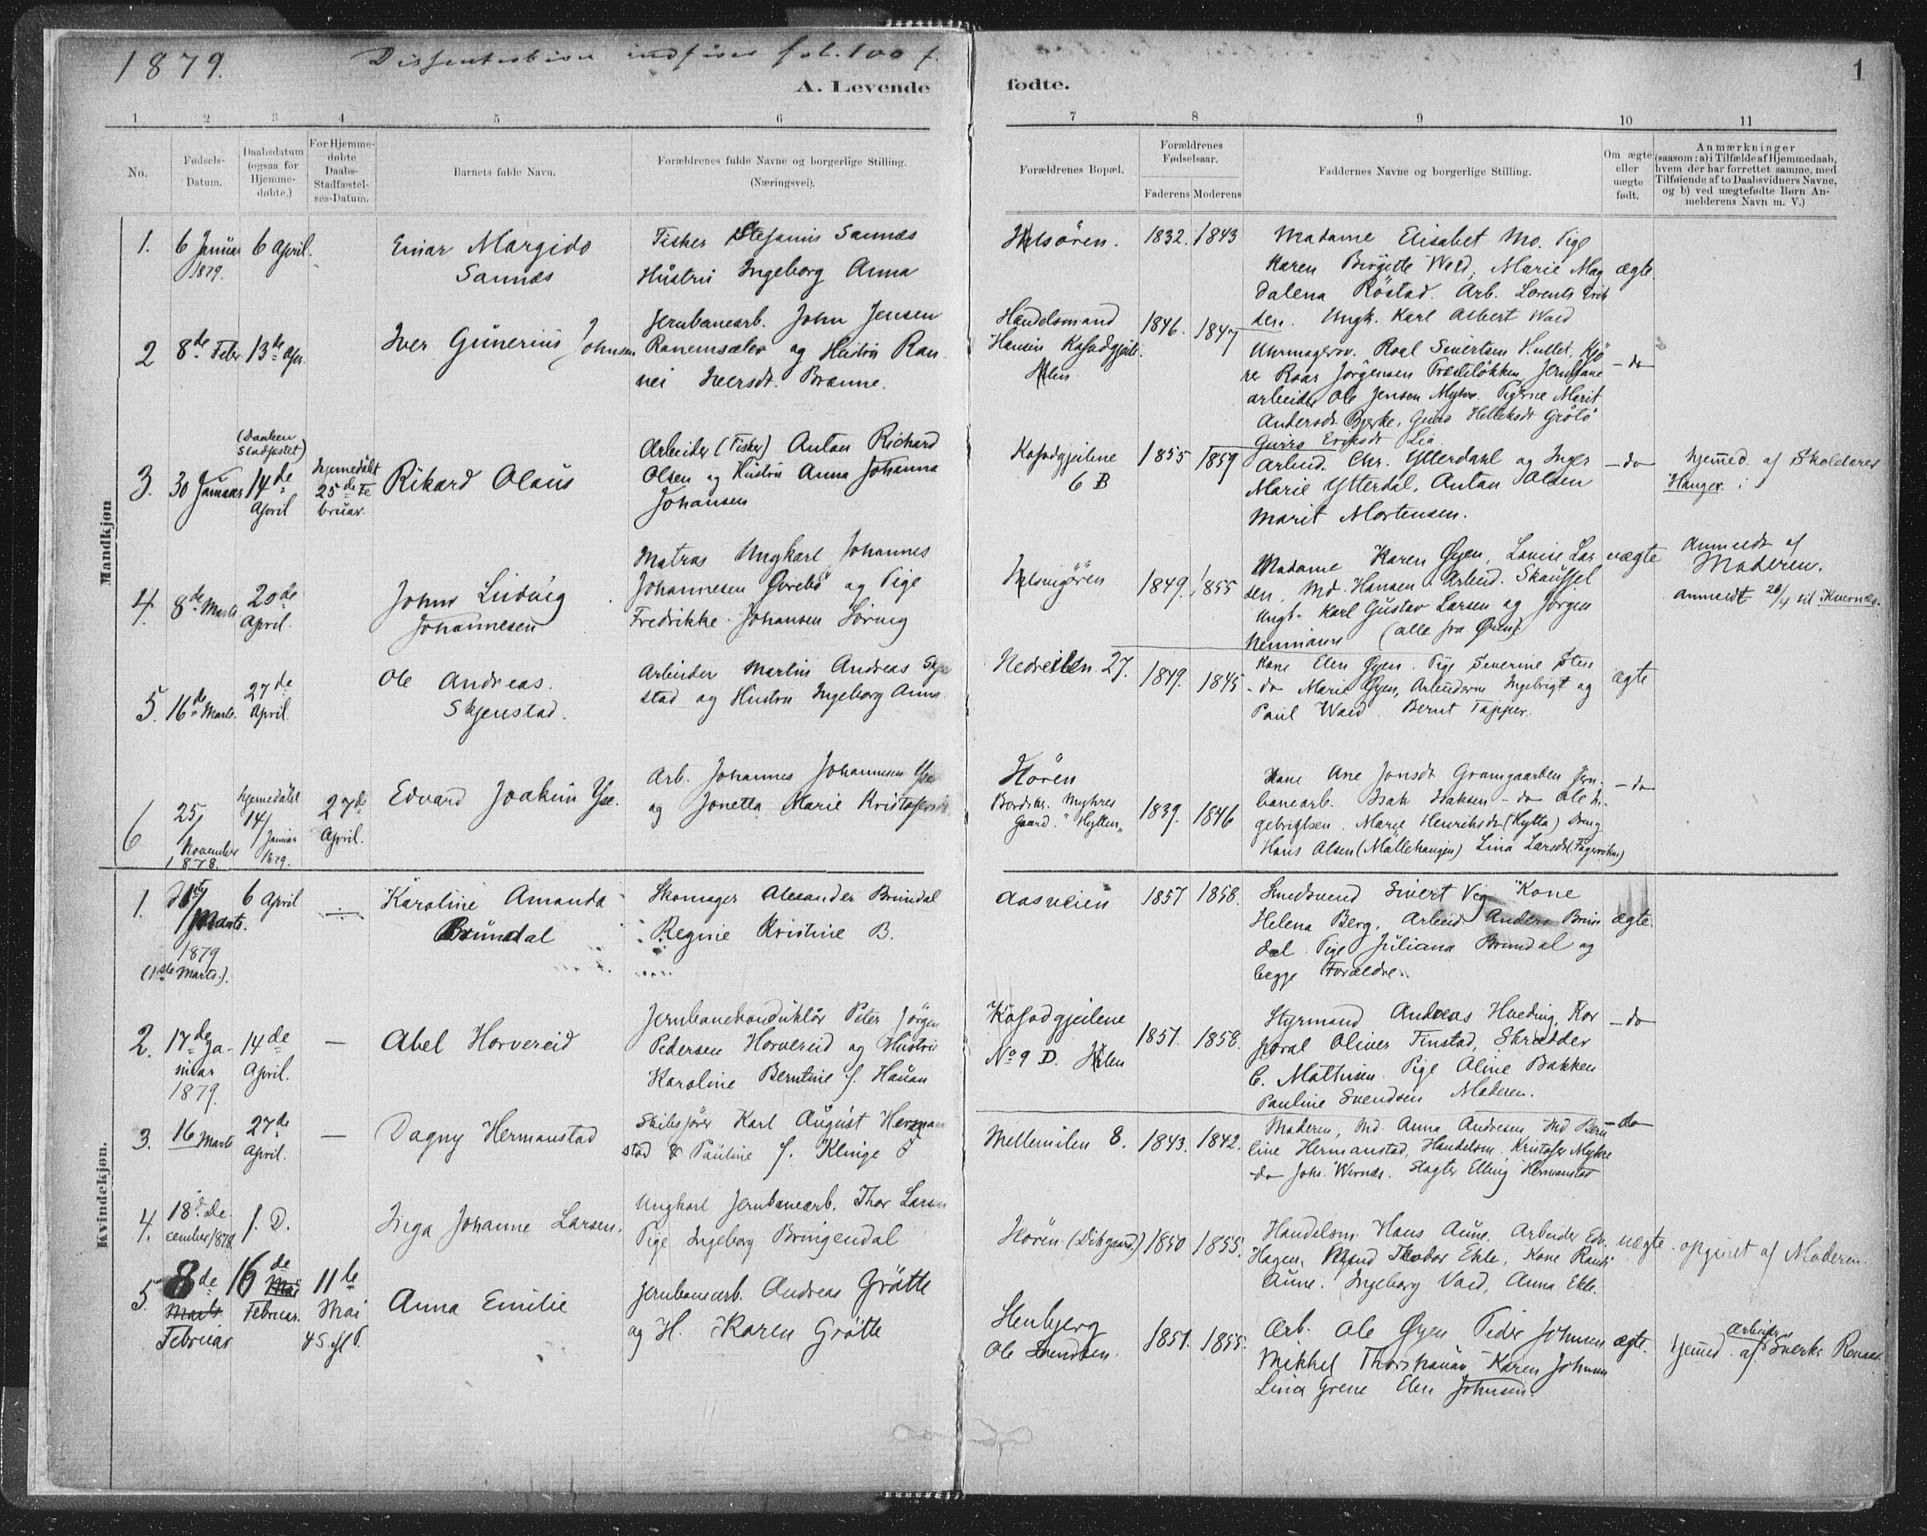 1879.
indføres fol. 100 f.
A. Levende fødte.
1
1 2 3 4 5 6 7 8 9 10 11
No.
Fødsels-Datum.
Daabsdatum (ogsaa for Hjemme-døbte.)
For Hjemme-døbte Daabs-Stadfæstel-ses-Datum.
Barnets fulde Navn.
Forældrenes fulde Navne og borgerlige Stilling. (Næringsvei).
Forældrenes Bopæl.
Forældrenes Fødselsaar.
Faderens Moderens
Faddernes Navne og borgerlige Stilling.
Om ægte eller uægte født.
Anmærkninger
(saasom: a) i Tilfælde af Hjemmedaab,
hvem der har forrettet samme, med
Tilføiende af to Daabsvidners Navne,
og b) ved uægtefødte Børn An-
melderens Navn m. V.)
Mandkjøn
1. 6 Januar 1879. 6 April. Einar Margido Sannæs
Fisker Stefanus Sannæs
Hustru Ingeborg Anna
Ilsören. 1832. 1843
Madame Elisabet Mo. Pige
Karen Birgitte Wold, Marie Mag
dalena Röstad. Arb. Lorents
Ungk. Karl Albert Wold
ægte.
2 8de Febr. 13de Apr. Iver Gunerius Johnsen
Jernbanearb. John Jensen
Ranemsælev og Hustru Ran
nei Iversdt. Brænne.
Handelsmand
Hansen
Ilen
1846. 1847
Uhrmagersv. Roal Sivertsen
re Roar Jörgensen Jernbane
arbeider Ole Jensen Myhre. Pigerne Marit
Andersdt. Bjerke, Guro
Guro Eriksdt Lia
- do
3. 30 Januar (Daaben Stadfæstet) 14de April hjemedöbt 25de Februar. Rikard Olaus
Arbeider (Fisker) Anton Richard
Olsen og Hustru Anna Johanna
Johansen
6 B
1855 1859
Arbeid. Chr. Ytterdahl og Inger
Marie Ytterdal, Anton Olsen
Marit Mortensen.
- do
hjemed. af Skolelærer
Hanger.
4. 8de Marts 20de April. Johan Ludvig Johannesen
Matros Ungkarl Johannes
Johannesen Övrebö og Pige
Fredrikke Johansen
1849. 1855
Madame Karen Øyen, Lovise Lar
sen, Md. Hansen Arbeid.
Ungk. Karl Gustav Larsen og Jörgen
Neumann (alle fra
uægte
Anmeldt af
Moderen.
anmeldt 28/4 til Kvernæs.
5. 16de Marts. 27de April. Ole Andreas. Skjenstad.
Arbeider Martin Andreas Skjen
stad og Hustru Ingeborg Anna
Nedreilen 27. 1849. 1845
Kone Elen Øyen. Pige Severine Sten
- do Marie Øyen, Arbeiderne Ingebrigt og
Paul Wold Bernt Tapper.
ægte
6 25/November 1878. hjemedöbt 14/Januar 1879. 27de April. Edvard Joakim Yse.
Arb. Johannes Johannesen Yse
og Jonetta Marie
Gaard. "Hytten"
1839. 1846
Kone Ane Jonsdt Gramgaarden Jern-
banearb. Isak Isaksen - do Ole In-
gebrigtsen. Marie Henriksdt (Hytta) Dreng
Hans Olsen (Möllehaugen) Lina Larsdt.
- do
Kvindekjøn.
1. Marts. 1879 (1ste Marts.) 6 April Karoline Amanda Bründal
Skomager Alexander Brundal
Regine Kristine B.
Aasveien 1857 1858.
Smedsvend Sivert Vig Kone
Helena Berg, Arbeid Anders Brun
dal Pige Juliana Brundal og
begge Forældre.
ægte.
2. 17de Januar 1879. 14de April. - Abel Horvereid
Jernbanekonduktör Peter Jörgen
Pedersen Horvereid og Hustru
Karoline Berntine f. Hauan
No 9 D. Ilen
1851. 1858.
Styrmand Andreas Hveding, Kor
poral Oliver Finstad, Skrædder
C. Mathisen. Pige Aline Bakken
Pauline Svendsen Moderen.
- do
3. 16 Marts 27de April. - Dagny Hermanstad
Skibsförer Karl August Herman
stad & Pauline f. Klinge
Mellemilen 8. 1843. 1842.
Moderen, Md. Anna Andresen, Md Bern
tine Hermanstad, Handelsm. Kristofer Myhre
- do Joh. Wernæs. Slagter Elling Hermanstad
- do
4. 18de December 1878. 1. D. Inga Johanne Larsen.
Ungkarl Jernbanearb. Thor Larsen
Pige Ingeborg Bringendal
1850 1855.
Handelsm. Hans Aune. Arbeider Edv.
Hagen, Theodor Ekle, Kone Randi
Aune. Ingeborg Vold, Anna Ekle.
uægte. opgivet af Moderen
5. 8de Marts Februar 16de Mai Februar. 11te Mai Anna Emilie
Jernbanearb. Andreas Grötte
og H. Karen Grötte
Stenbjerg
Ole Svendsen.
1851. 1855.
Arb. Ole Øyen Peder Johnsen
Mikkel Thorshaug Karen Johnsen
Lina Grene Elen Johnsen.
ægte.
hjemed. af Arbeider